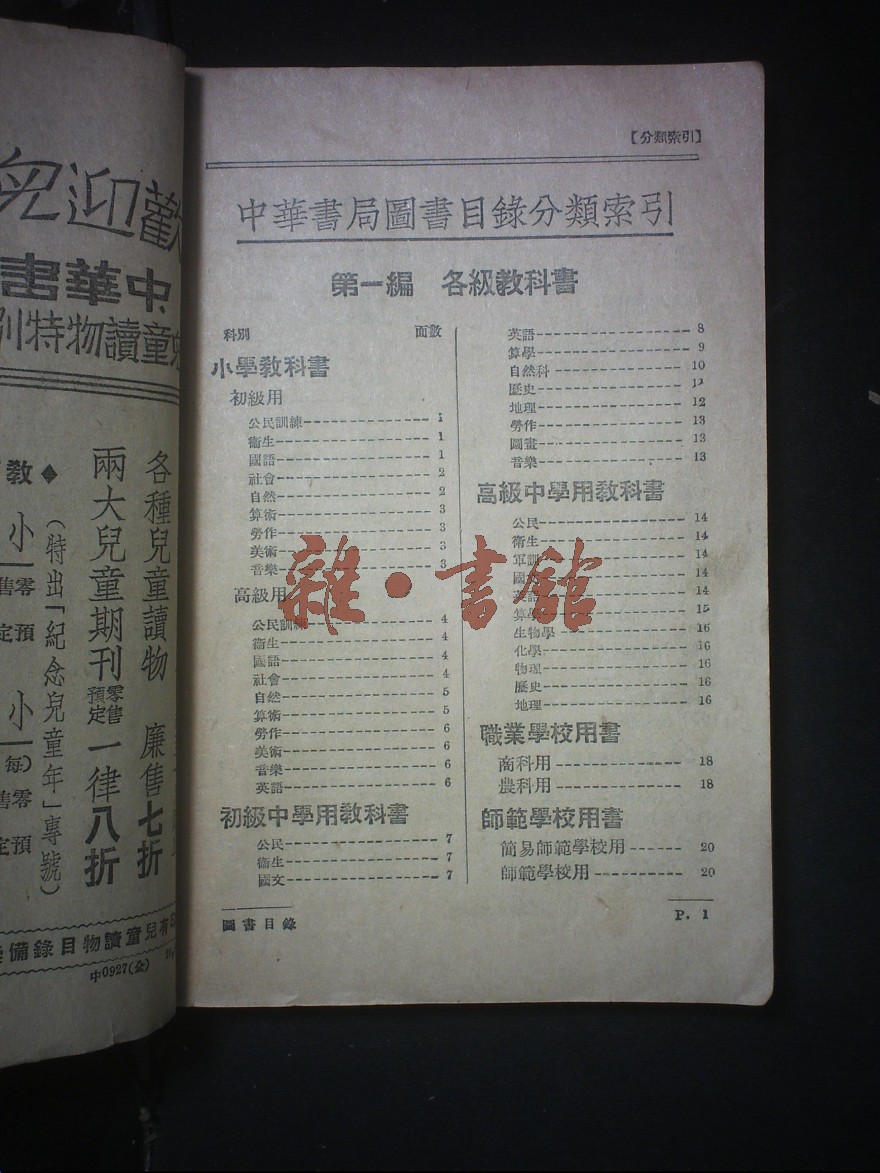 【分類索引】
中華書局圖書目錄分類索引
第一編 各級教科書
科別 面數
小學教科書
初級用
公民訓練 1
衛生 1
國語 1
社會 2
自然 2
算術 3
勞作 3
美術 3
音樂 3
高級用
公民訓練 4
衛生 4
國語 4
社會 4
自然 5
算術 5
勞作 6
美術 6
音樂 6
英語 6
初級中學用教科書
公民 7
衛生 7
國文 7
英語 8
算學 9
自然科 10
歷史
地理 12
勞作 13
圖畫 13
音樂 13
高級中學用教科書
公民 14
衛生 14
軍訓 14
國 14
英語 14
算學 15
生物學 16
化學 16
物理 16
歷史 16
地理 16
職業學校用書
商科用 18
農科用 18
師範學校用書
簡易師範學校用 20
師範學校用 20
圖書目錄
P. 1
雜·書館
歡迎兒
中華書
童讀物特別
各種兒童讀物 廉售七折
兩大兒童期刊 零售預定 一律八折
(特出「紀念兒童年」專號)
◆教
小
零售
預定
小
(每
零售
預定
有兒童讀物目錄備
中0927(全)